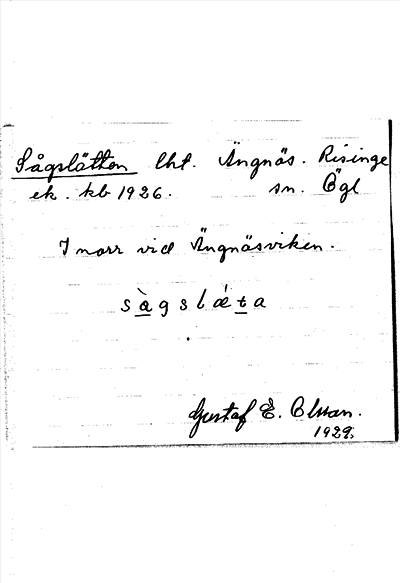 Sågslätten lht. Ängnäs. Risinge
ek. kb 1926. sn. Ögl
I norr vid Ängnäsviken.
sàgslǽta
Gustaf E. Olsson.
1929.